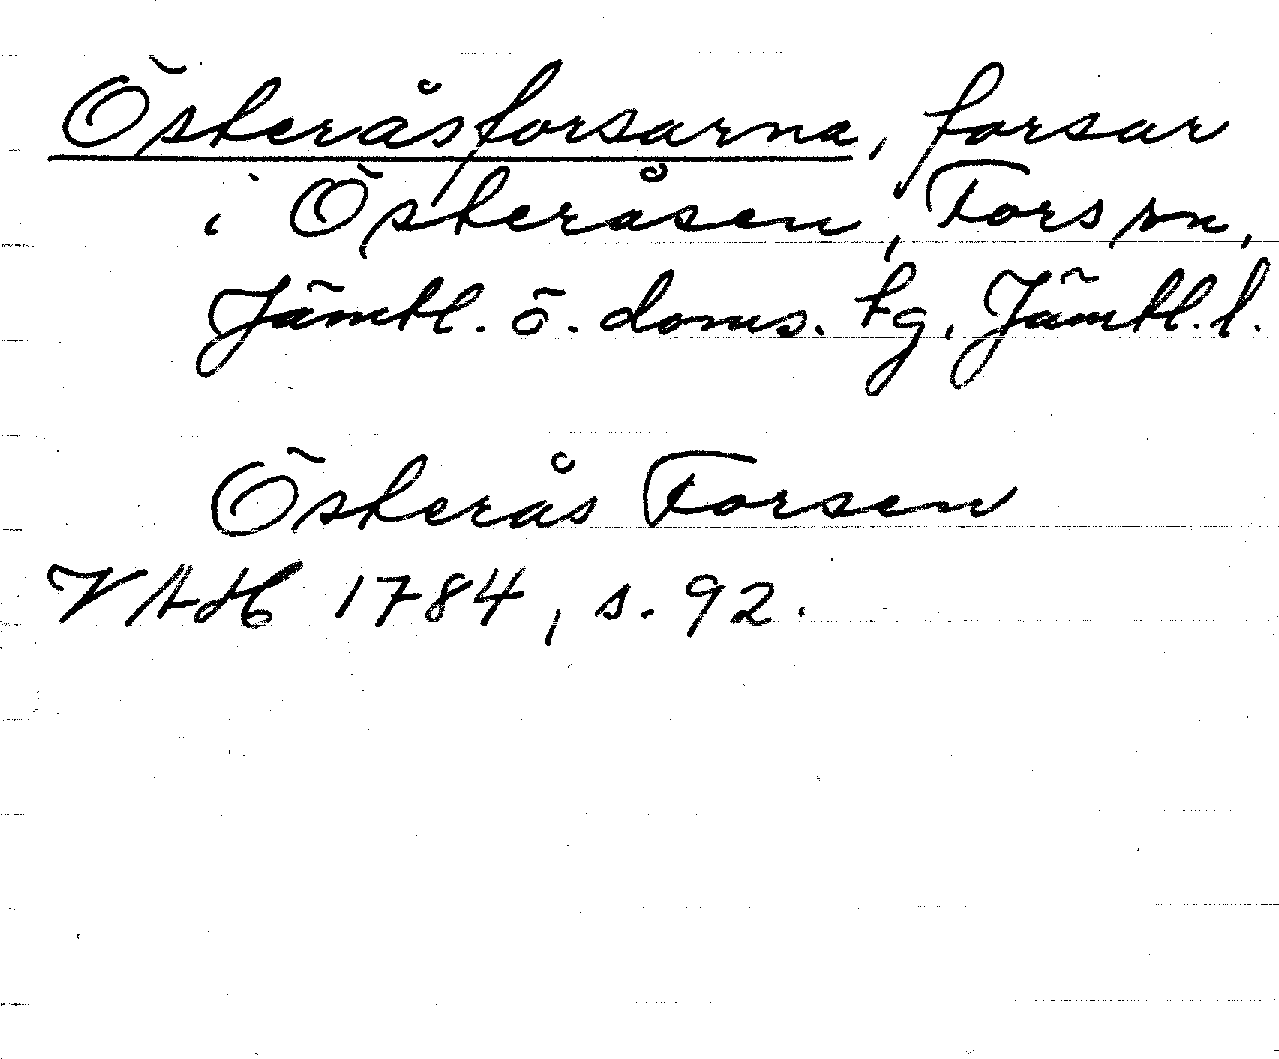 Österåsforsarna, forsar
i Österåsen, Fors sn,
Jämtl. ö. doms. tg. Jämtl. l.
Österås Forsen
VAH 1784, s. 92.